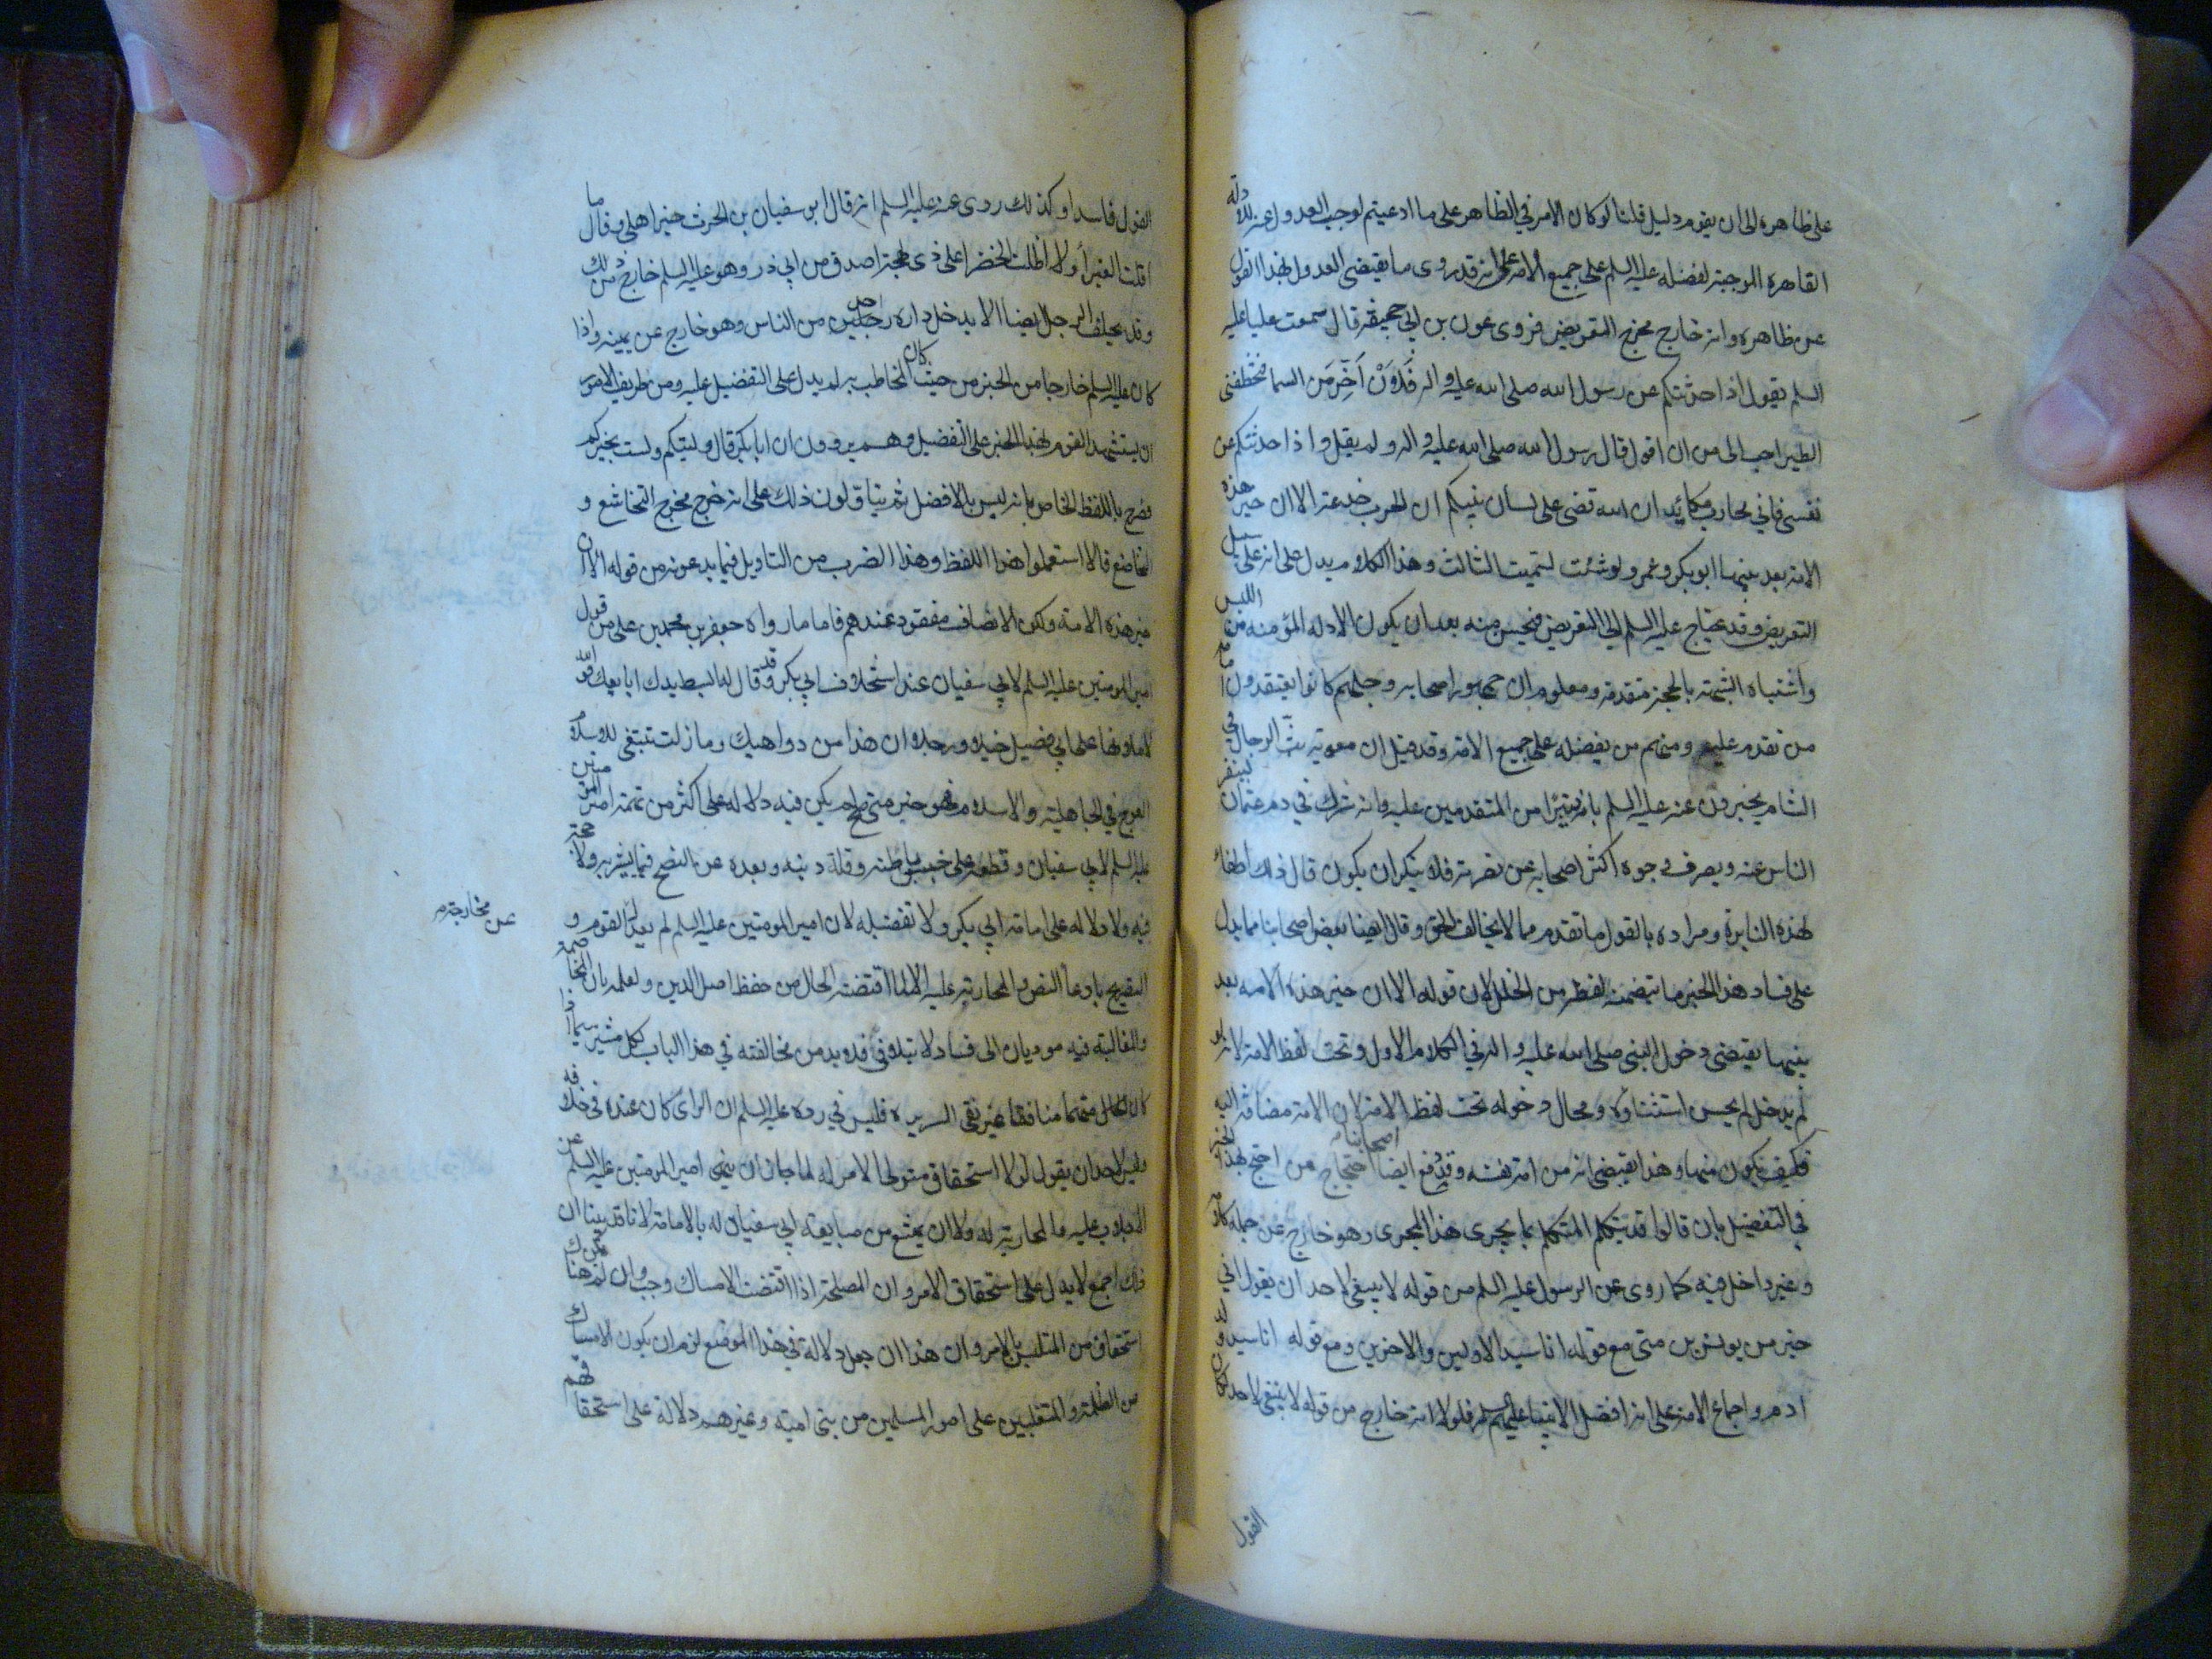 على ظاهره الى ان يقوم دليل قلنا لو كان الامر في الظاهر على ما ادعيتم لوجب العدول عنه للادلة
القاهرة الموجبة لفضله عليه السلم على جميع الامة على انه قد روى ما يقتضى العدول بهذا القول
عن ظاهره وانه خارج مخرج التعريض فروى عون بن ابي جحيفة قال سمعت عليا عليه
السلم يقول اذا حدثتكم عن رسول الله صلى الله عليه واله فلان اخر من السما فتخطفنى
الطير احب الى من ان اقول قال رسول الله صلى الله عليه واله ولم يقل واذا حدثتكم عن
نفسى فاني محارب مكائد ان الله قضى على لسان نبيكم ان الحرب خدعة الا ان خير هذه
الامة بعد نبيها ابو بكر وعمر ولو شئت لسميت الثالث وهذا الكلام يدل على انه على سبيل
التعريض وقد يحتاج عليه السلم الى التعريض فيحسن منه بعد ان يكون الادله المؤمنه من اللبس
واشتباه الشبهة بالحجة متقدمة ومعلوم ان جمهور اصحابه وجلهم كانوا يعتقدون امامة
من تقدم عليه ومنهم من يفضله على جميع الامة وقد قيل ان معوية بث الرجال في
الشام يخبرون عنه عليه السلم بانه يتبرأ من المتقدمين عليه وانه شرك في دم عثمان لينفر
الناس عنه ويصرف وجوه اكثر اصحابه عن نصرته فلا ينكر ان يكون قال ذلك اطفاء
لهذه النايرة ومراده بالقول ما تقدم مما لا يخالف الحق وقال ايضا بعض اصحابنا مما يدل
على فساد هذا الخبر ما يتضمنه لفظه من الخلل لان قوله الا ان خير هذه الامه بعد
نبيها يقتضى دخول النبى صلى الله عليه واله في الكلام الاول وتحت لفظ الامة لانه لو
لم يدخل لم يحسن استثناؤه ومحال دخوله تحت لفظ الامة لان الامة مضافة اليه
فكيف يكون منها وهذا يقتضى انه من امة نفسه وقد دفع ايضا اصحابنا احتجاج من احتج بهذا الخبر
في التفضيل بان قالوا قد يتكلم المتكلم بما يجرى هذا المجرى وهو خارج عن جملة كلامه
وغير داخل فيه كما روى عن الرسول عليه السلم من قوله لا ينبغى لاحد ان يقول انى
خير من يونس بن متى مع قوله انا سيد الاولين والاخرين ومع قوله انا سيد ولد
ادم واجماع الامة على انه افضل الانبيا عليهم السلم فلولا انه خارج من قوله لا ينبغى لاحد لكان
القول
القول فاسدا وكذلك روى عنه عليه السلم انه قال ابو سفيان بن الحرث خير اهلي وقال ما
اقلت الغبرا ولا اظلت الخضرا على ذى لهجة اصدق من ابي ذر وهو عليه السلم خارج من ذلك
وقد يحلف الرجل ايضا الا يدخل داره احد من الناس وهو خارج عن يمينه واذا
كان عليه السلم خارجا من الخبر من حيث كان المخاطب به لم يدل على التفضيل عليه ومن طريف الامور
ان يستشهد القوم بهذا الخبر على التفضيل وهم يروون ان ابا بكر قال وليتكم ولست بخيركم
فصرح باللفظ الخاص بانه ليس بالافضل ثم يتاولون ذلك على انه خرج مخرج التخاشع و
التخاضع فالا استعملوا هذا اللفظ وهذا الضرب من التاويل فيما يدعونه من قوله الا ان
خير هذه الامة ولكن الانصاف مفقود عندهم فاما ما رواه جعفر بن محمد بن على من قول
امير المومنين عليه السلم لابي سفيان عند استخلاف ابي بكر وقد قال له ابسط يدك ابايعك فوالله
لاملأنها على ابي فصيل خيلا ورجلا ان هذا من دواهيك وما زلت تبتغى للاسلام
العوج في الجاهلية والاسلام فهو خبر متى صح لم يكن فيه دلاله على اكثر من تهمة امير المومنين
عليه السلم لابي سفيان وقطعه على خبث باطنه وقلة دينه وبعده عن النصح فيما يشير به ولا حجة
فيه ولا دلاله على امامة ابي بكر ولا تفضيله لان امير المومنين عليه السلم لم يعدل القوم و
عن مخارجة
التصريح بادعا النص والمحاربة عليه الا لما اقتضته الحال من حفظ اصل الدين ولعلمه بان المخاصمة
والمغالبة فيه موديان الى فساد لا يتلافى فلا بد من مخالفته في هذا الباب لكل مشير سيما اذا
كان متهما منافقا غير نقى السريرة فليس في رده عليه السلم ان الراى كان عنده في خلافه
وليس لاحد ان يقول لولا استحقاق متولى الامر له لما جاز ان ينهى امير المومنين عليه السلم عن
الاجلاب عليه والمحاربة له ولا ان يمتنع من مبايعة ابي سفيان له بالامامة لانا قد بينا ان
ذلك اجمع لا يدل على استحقاق الامر وان المصلحة اذا اقتضت الامساك وجب وان لم يكن هناك
استحقاق من المتلبس بالامر وان هذا ان جعل دلالة في هذا الموضع لزم ان يكون الامساك
من الظلمة والمتغلبين على امور المسلمين من بنى امية وغيرهم دلالة على استحقاقهم